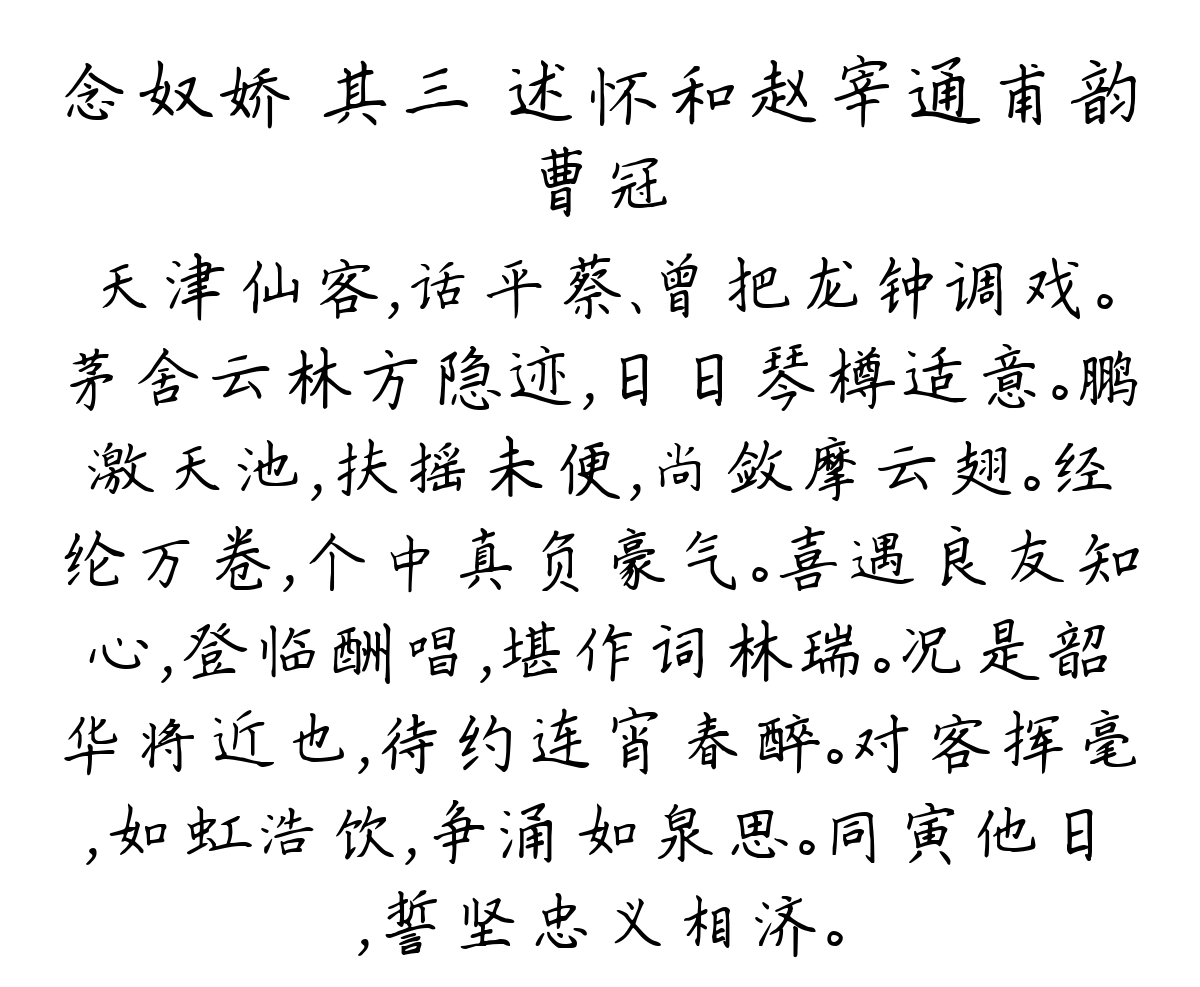 念奴娇 其三 述怀和赵宰通甫韵
曹冠
天津仙客,话平蔡、曾把龙钟调戏。
茅舍云林方隐迹,日日琴樽适意。鹏
激天池,扶摇未便,尚敛摩云翅。经
纶万卷,个中真负豪气。喜遇良友知
心,登临酬唱,堪作词林瑞。况是韶
华将近也,待约连宵春醉。对客挥毫
,如虹浩饮,争涌如泉思。同寅他日
,誓坚忠义相济。